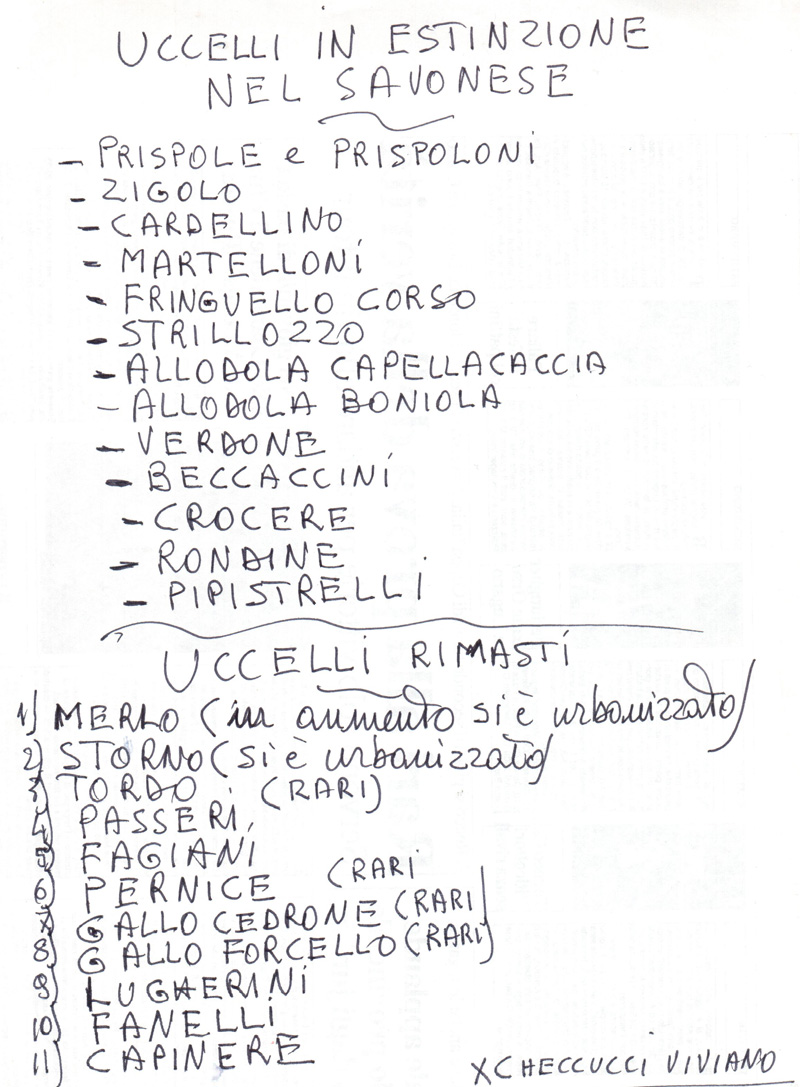 UCCELLI IN ESTINZIONE
NEL SAVONESE
- PRISPOLE e PRISPOLONI
- ZIGOLO
- CARDELLINO
- MARTELLONI
- FRINGUELLO CORSO
- STRILLOZZO
- ALLODOLA CAPELLACACCIA
- ALLODOLA BONIOLA
- VERDONE
- BECCACCINI
- CROCERE
- RONDINE
- PIPISTRELLI
UCCELLI RIMASTI
1) MERLO (in aumento si è urbanizzato)
2) STORNO (si è urbanizzato)
3) TORDO (RARI)
4) PASSERI
5) FAGIANI
6) PERNICE (RARI
7) GALLO CEDRONE (RARI)
8) GALLO FORCELLO (RARI)
9) LUGHERINI
10) FANELLI
11) CAPINERE
X CHECCUCCI VIVIANO